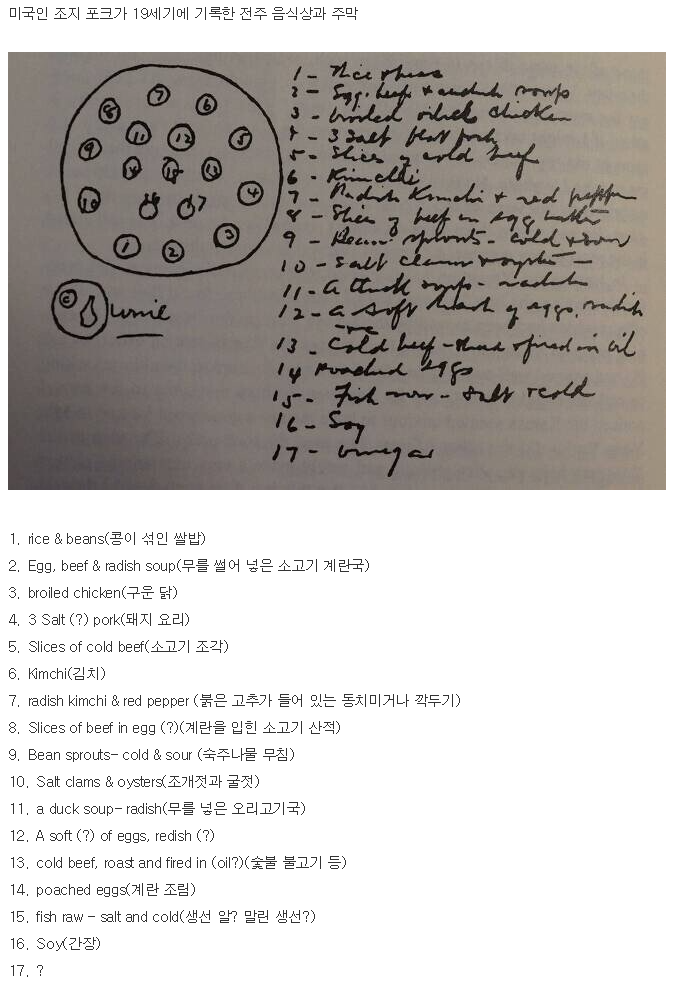 미국인 조지 포크가 19세기에 기록한 전주 음식상과 주막
7
8 6
11 12 5
9
14 15 13
10 16 17 4
1 2 3
1 -
2 - Egg, beef & radish soup
3 - broiled chicken
4 - 3 Salt pork
5 - Slices of cold beef
6 - Kimchi
7 - Radish Kimchi & red pepper
8 - Slices of beef in egg
9 - Bean sprouts - cold & sour
10 - Salt clams & oysters -
11 - A duck soup - radish
12 - A soft of eggs, radish
13 - Cold beef - fired in oil
14 Poached eggs
15 - Fish - salt & cold
16 - Soy
17 - Vinegar
1. rice & beans(콩이 섞인 쌀밥)
2. Egg, beef & radish soup(무를 썰어 넣은 소고기 계란국)
3. broiled chicken(구운 닭)
4. 3 Salt (?) pork(돼지 요리)
5. Slices of cold beef(소고기 조각)
6. Kimchi(김치)
7. radish kimchi & red pepper (붉은 고추가 들어 있는 동치미거나 깍두기)
8. Slices of beef in egg (?)(계란을 입힌 소고기 산적)
9. Bean sprouts- cold & sour (숙주나물 무침)
10. Salt clams & oysters(조개젓과 굴젓)
11. a duck soup- radish(무를 넣은 오리고기국)
12. A soft (?) of eggs, redish (?)
13. cold beef, roast and fired in (oil?)(숯불 불고기 등)
14. poached eggs(계란 조림)
15. fish raw - salt and cold(생선 알? 말린 생선?)
16. Soy(간장)
17. ?